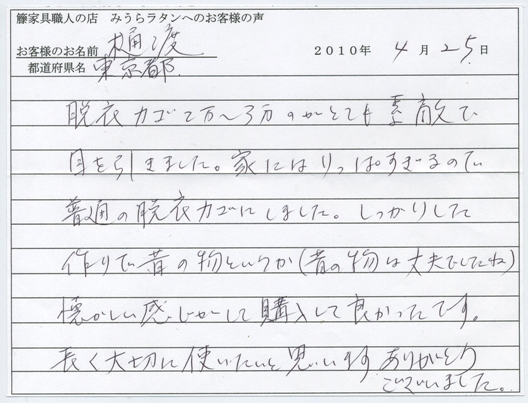 籐家具職人の店 みうらラタンへのお客様の声
お客様のお名前 樋渡 2010年 4月25日
都道府県名 東京都
脱衣カゴ2万~3万のがとても素敵で
目を引きました。家にはりっぱすぎるので
普通の脱衣カゴにしました。しっかりした
作りで昔の物というか(昔の物は丈夫でしたね)
懐かしい感じがして購入して良かったです。
長く大切に使いたいと思います ありがとう
ございました。